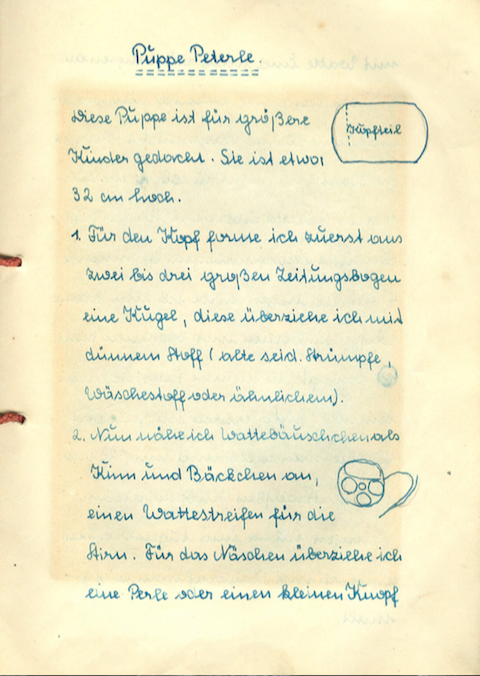 Puppe Peterle.
Diese Puppe ist für größere
Kopfteil
Kinder gedacht. Sie ist etwa
32 cm hoch.
1. Für den Kopf forme ich zuerst aus
zwei bis drei großen Zeitungsbogen
eine Kugel, diese überziehe ich mit
dünnem Stoff (alte seid. Strümpfe,
Wäschestoff oder ähnlichem).
2. Nun nähe ich Wattebäuschchen als
Kinn und Bäckchen an,
einen Wattestreifen für die
Stirn. Für das Näschen überziehe ich
eine Perle oder einen kleinen Knopf